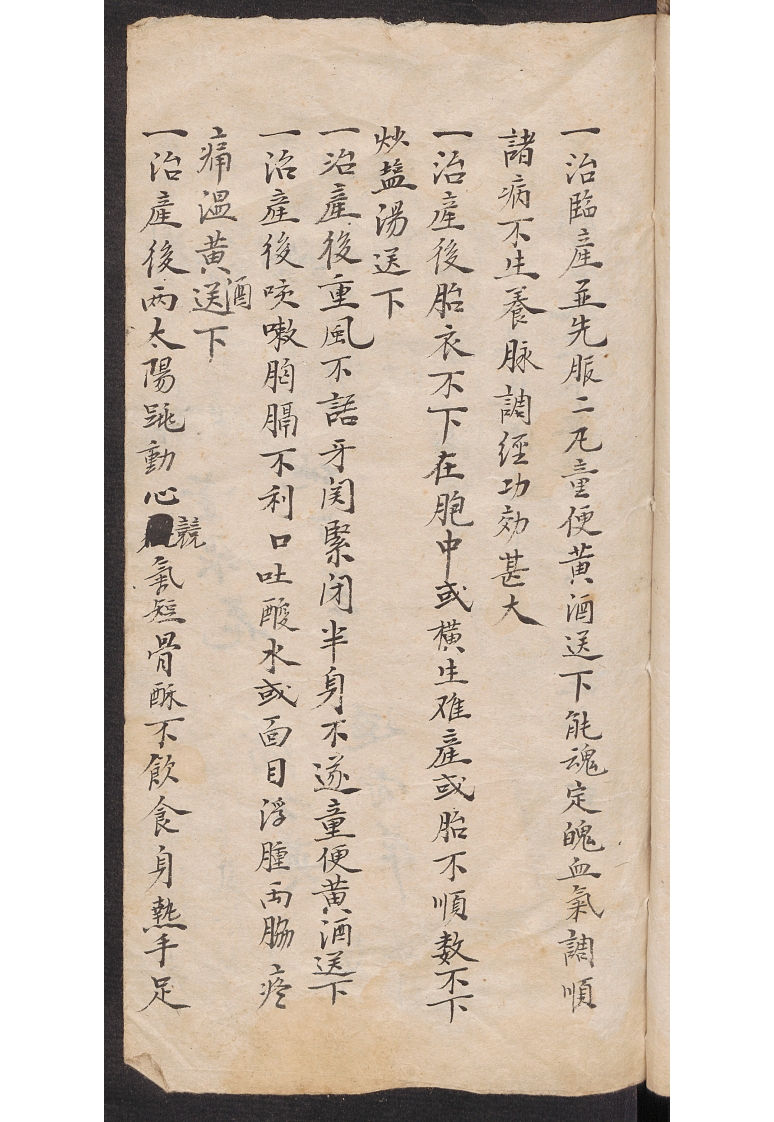 一治臨產並先服二九童便黃酒送下能魂定魄血氣調順
諸病不生養脉調經功効甚大
一治產後胎衣不下在胞中或橫生难產或胎不順数不下
炒盐湯送下
一治產後重風不語牙関緊闭半身不遂童便黃酒送下
一治產後咳嗽胸膈不利口吐酸水或面目浮腫两脇疼
痛溫黃酒送下
一治產後两太陽跳動心競氣短骨酥不飲食身熱手足